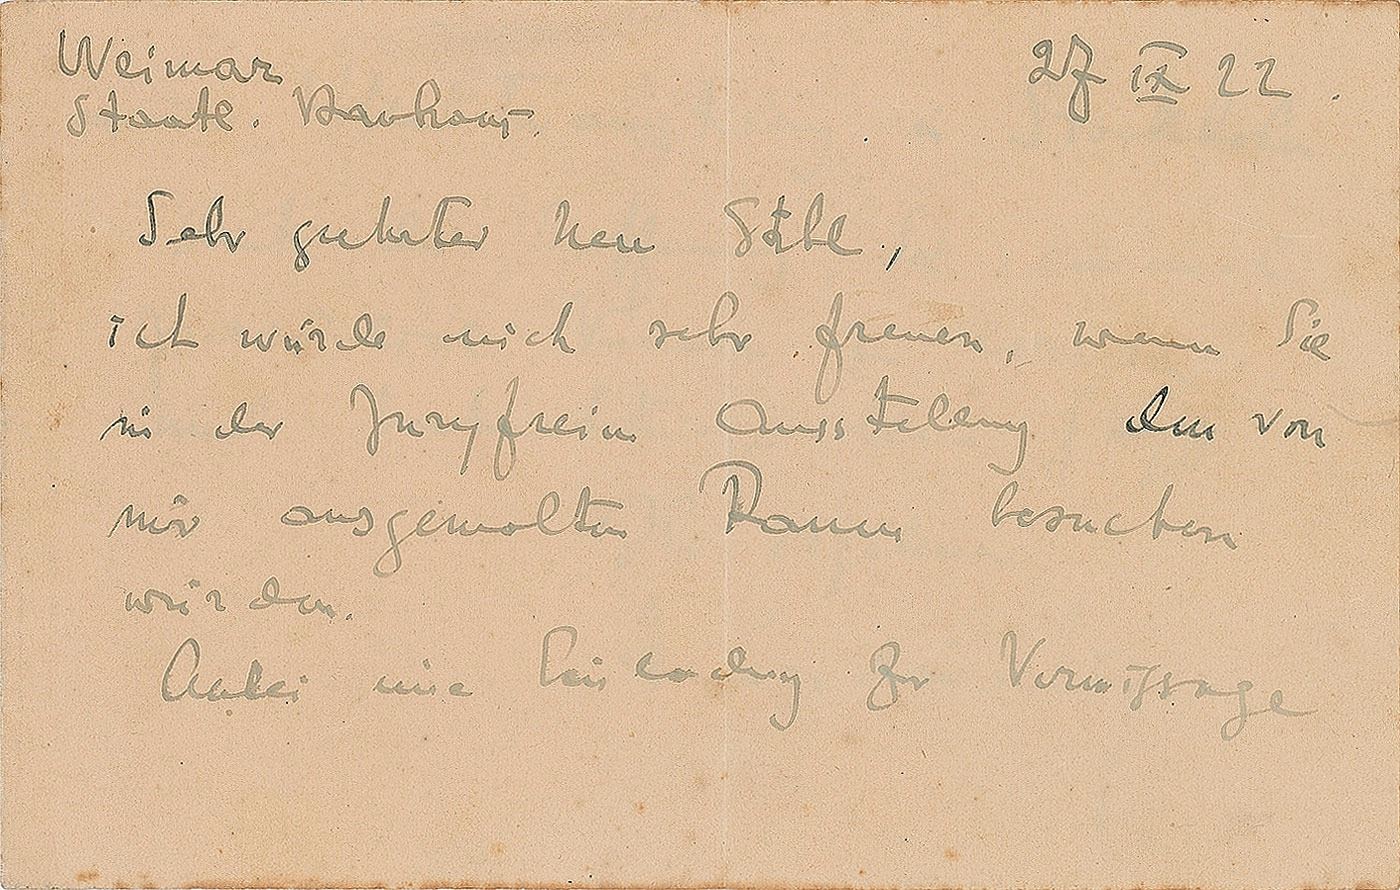 Weimar
Staatl. Bauhaus.
27 IX 22.
Sehr geehrter Herr Stahl,
ich würde mich sehr freuen, wenn Sie
in der Juryfreien Ausstellung den von
mir ausgemalten Raum besuchen
würden.
Anbei eine Einladung zur Vernissage